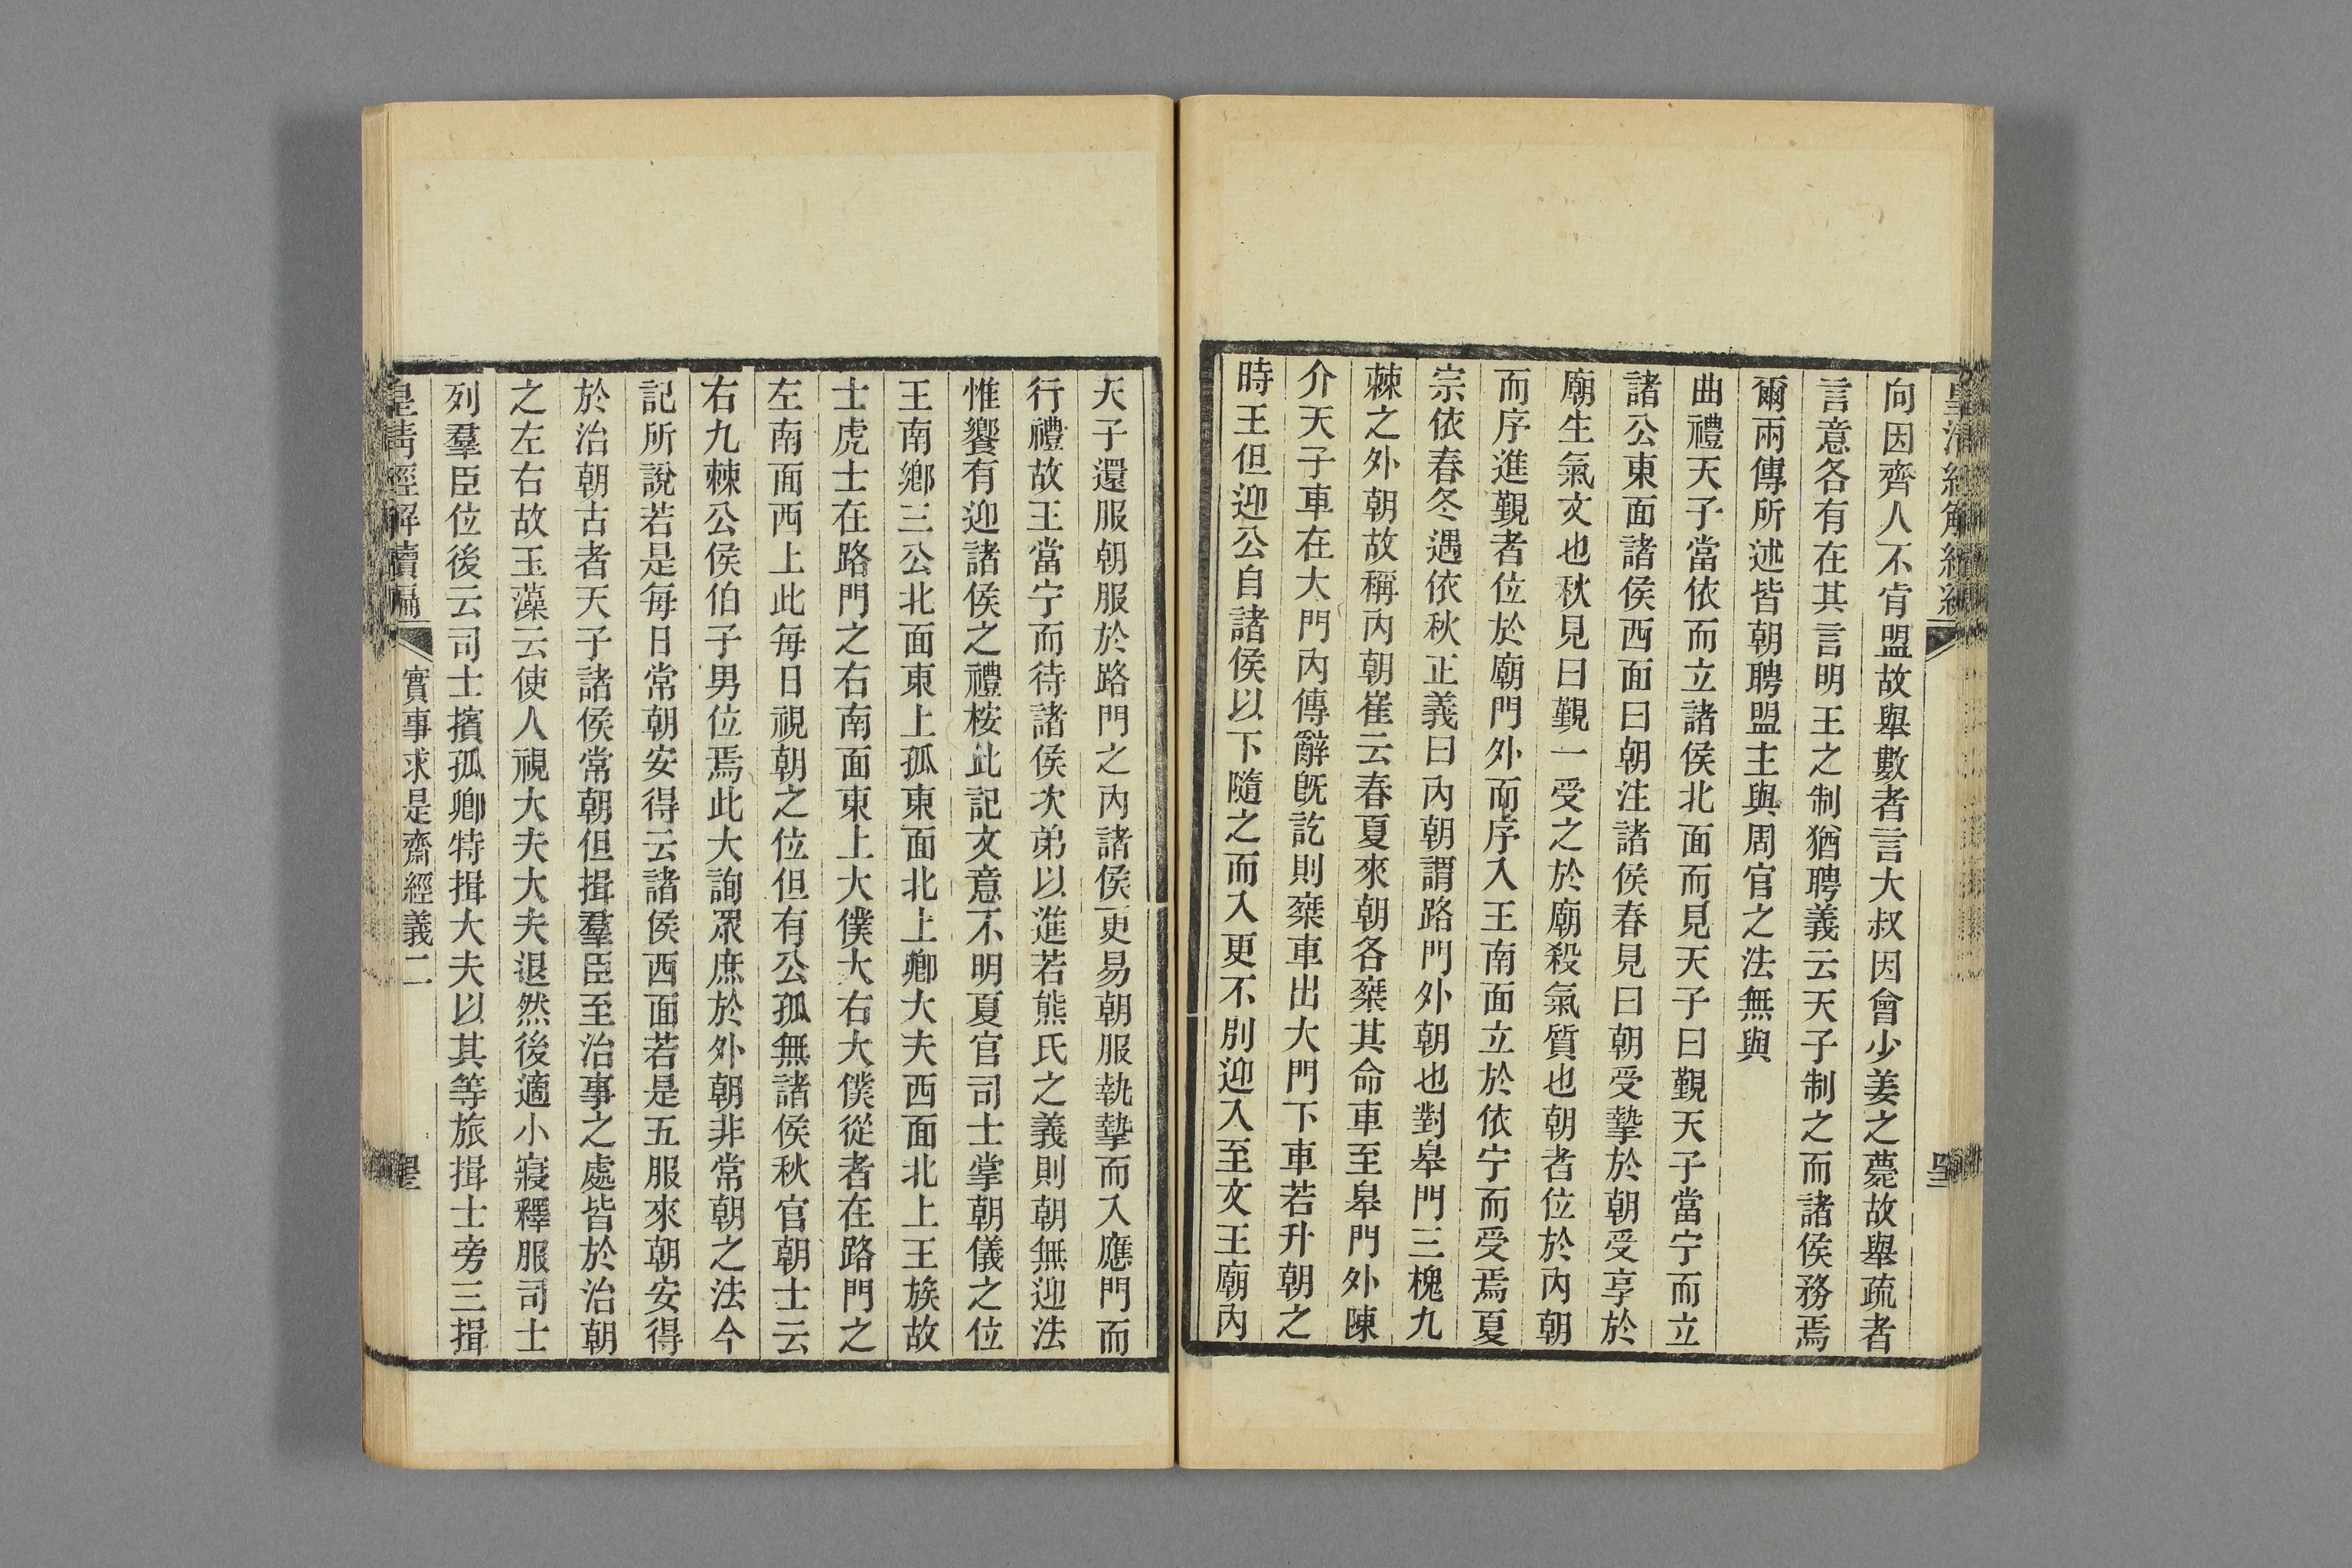 向因齊人不肯盟故舉數者言大叔因會少姜之薨故舉疏者
言意各有在其言明王之制猶聘義云天子制之而諸侯務焉
爾兩傳所述皆朝聘盟主與周官之法無與
曲禮天子當依而立諸侯北面而見天子曰覲天子當宁而立
諸公東面諸侯西面曰朝注諸侯春見曰朝受摯於朝受享於
廟生氣文也秋見曰覲一受之於廟殺氣質也朝者位於內朝
而序進覲者位於廟門外而序入王南面立於依宁而受焉夏
宗依春冬遇依秋正義曰內朝謂路門外朝也對皋門三槐九
棘之外朝故稱內朝崔云春夏來朝各椉其命車至皋門外陳
介天子車在大門內傳辭旣訖則椉車出大門下車若升朝之
時王但迎公自諸侯以下隨之而入更不別迎入至文王廟內
天子還服朝服於路門之內諸侯更易朝服執摯而入應門而
行禮故王當宁而待諸侯次弟以進若熊氏之義則朝無迎法
惟饗有迎諸侯之禮桉此記文意不明夏官司士掌朝儀之位
王南鄉三公北面東上孤東面北上卿大夫西面北上王族故
士虎士在路門之右南面東上大僕大右大僕從者在路門之
左南面西上此每日視朝之位但有公孤無諸侯秋官朝士云
右九棘公侯伯子男位焉此大詢眾庶於外朝非常朝之法今
記所說若是每日常朝安得云諸侯西面若是五服來朝安得
於治朝古者天子諸侯常朝但揖羣臣至治事之處皆於治朝
之左右故玉藻云使人視大夫大夫退然後適小寢釋服司士
列羣臣位後云司士擯孤卿特揖大夫以其等旅揖士旁三揖
皇清經解續編 實事求是齋經義二